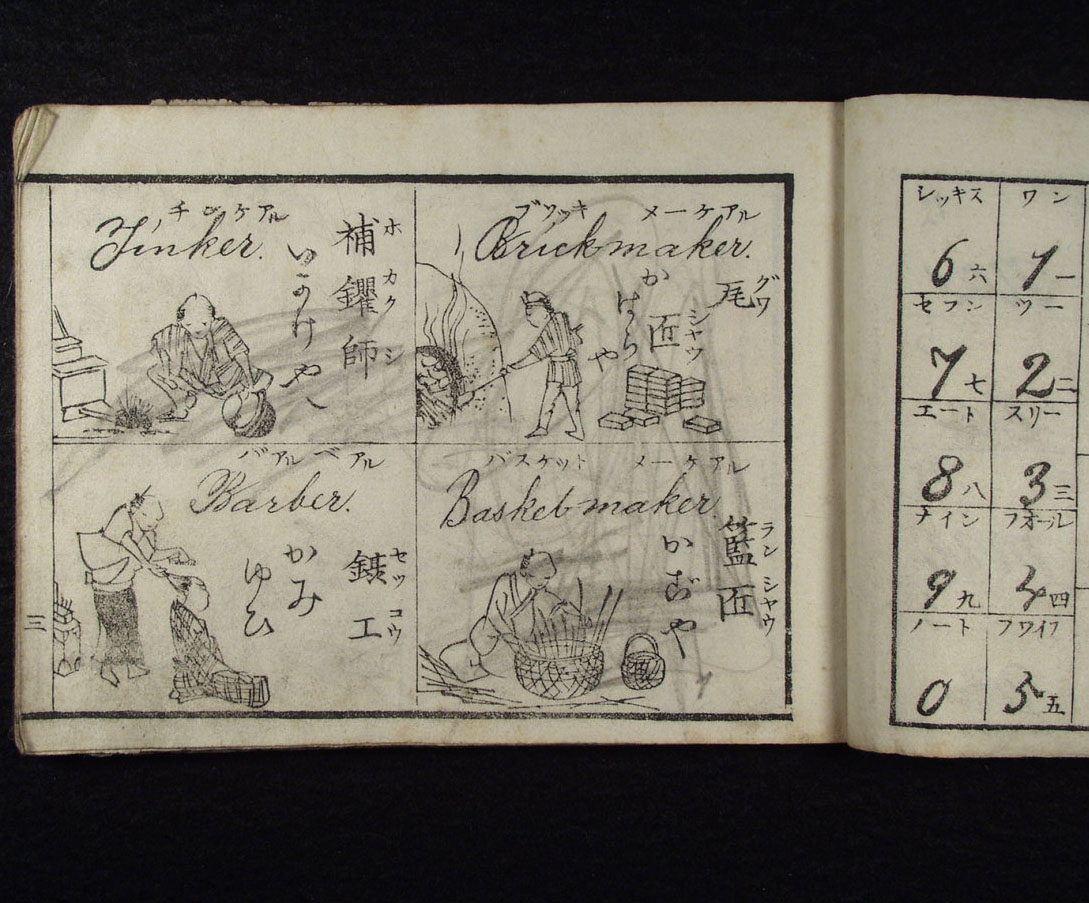 チンケアル
Tinker.
補鑺師
ホカクシ
いかけや
ブリッキ メーケアル
Brickmaker.
瓦匠
グワシャウ
かはらや
バアルベアル
Barber.
工
セツコウ
かみゆひ
バスケット メーケアル
Basketmaker.
籃匠
ランシャウ
かごや
三
ワン
1 一
ツー
2 二
スリー
3 三
フオール
4 四
フワイフ
5 五
シッキス
6 六
セフン
7 七
エート
8 八
ナイン
9 九
ノート
0